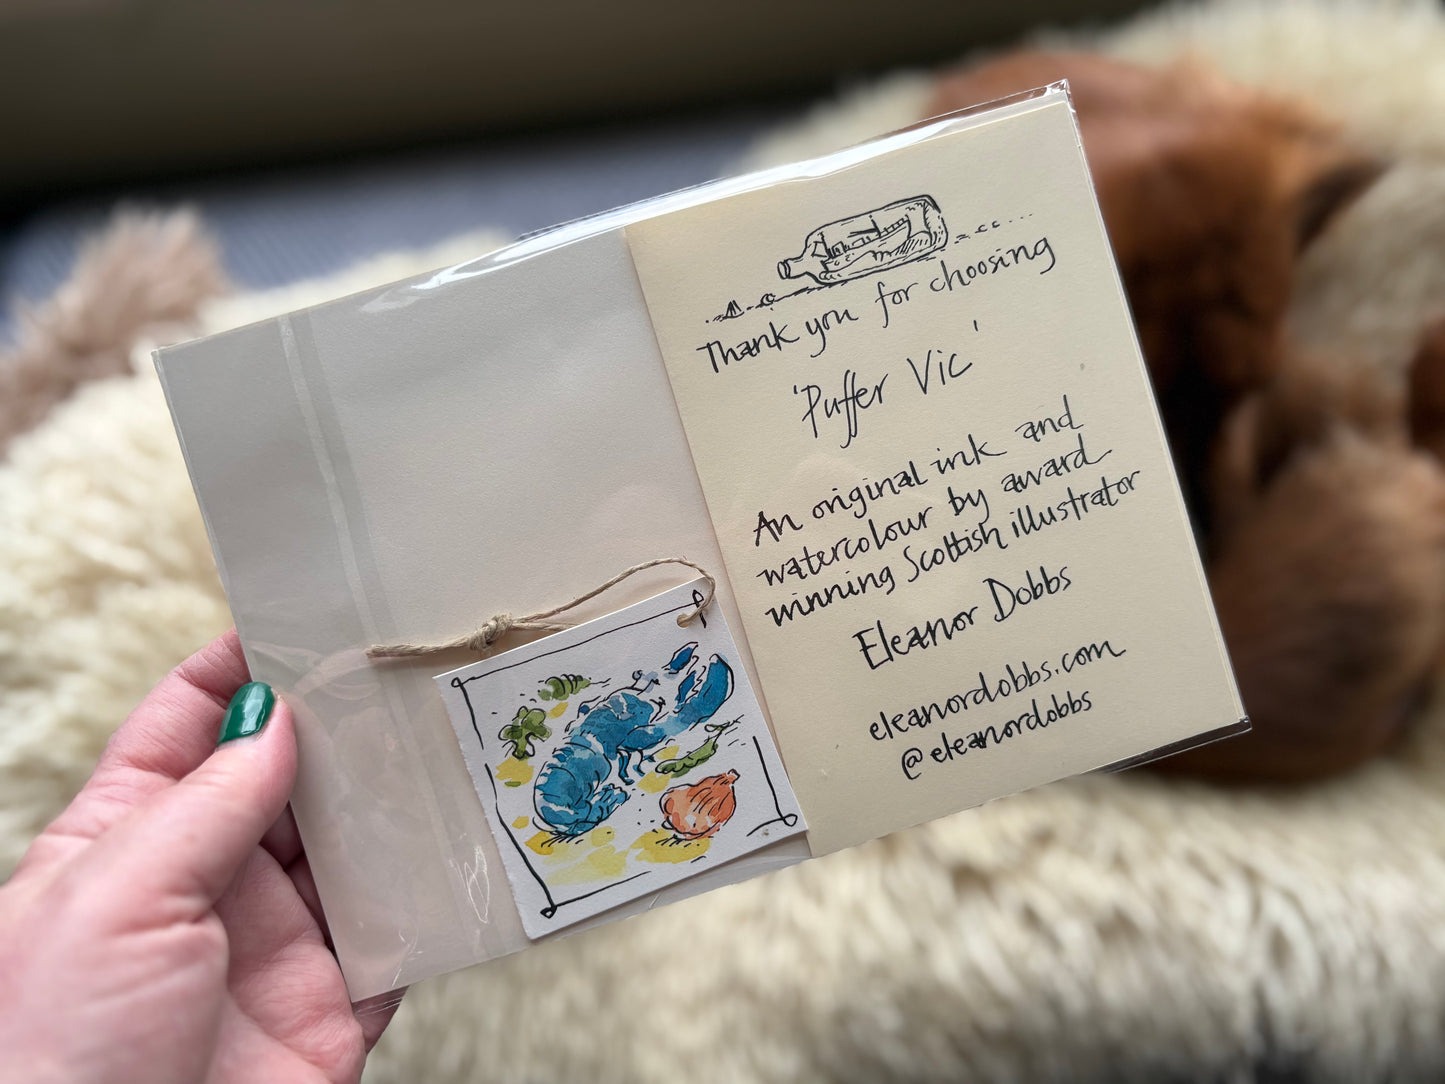 Thank you for choosing
'Puffer Vic'
An original ink and
watercolour by award
winning Scottish illustrator
Eleanor Dobbs
eleanordobbs.com
@eleanordobbs